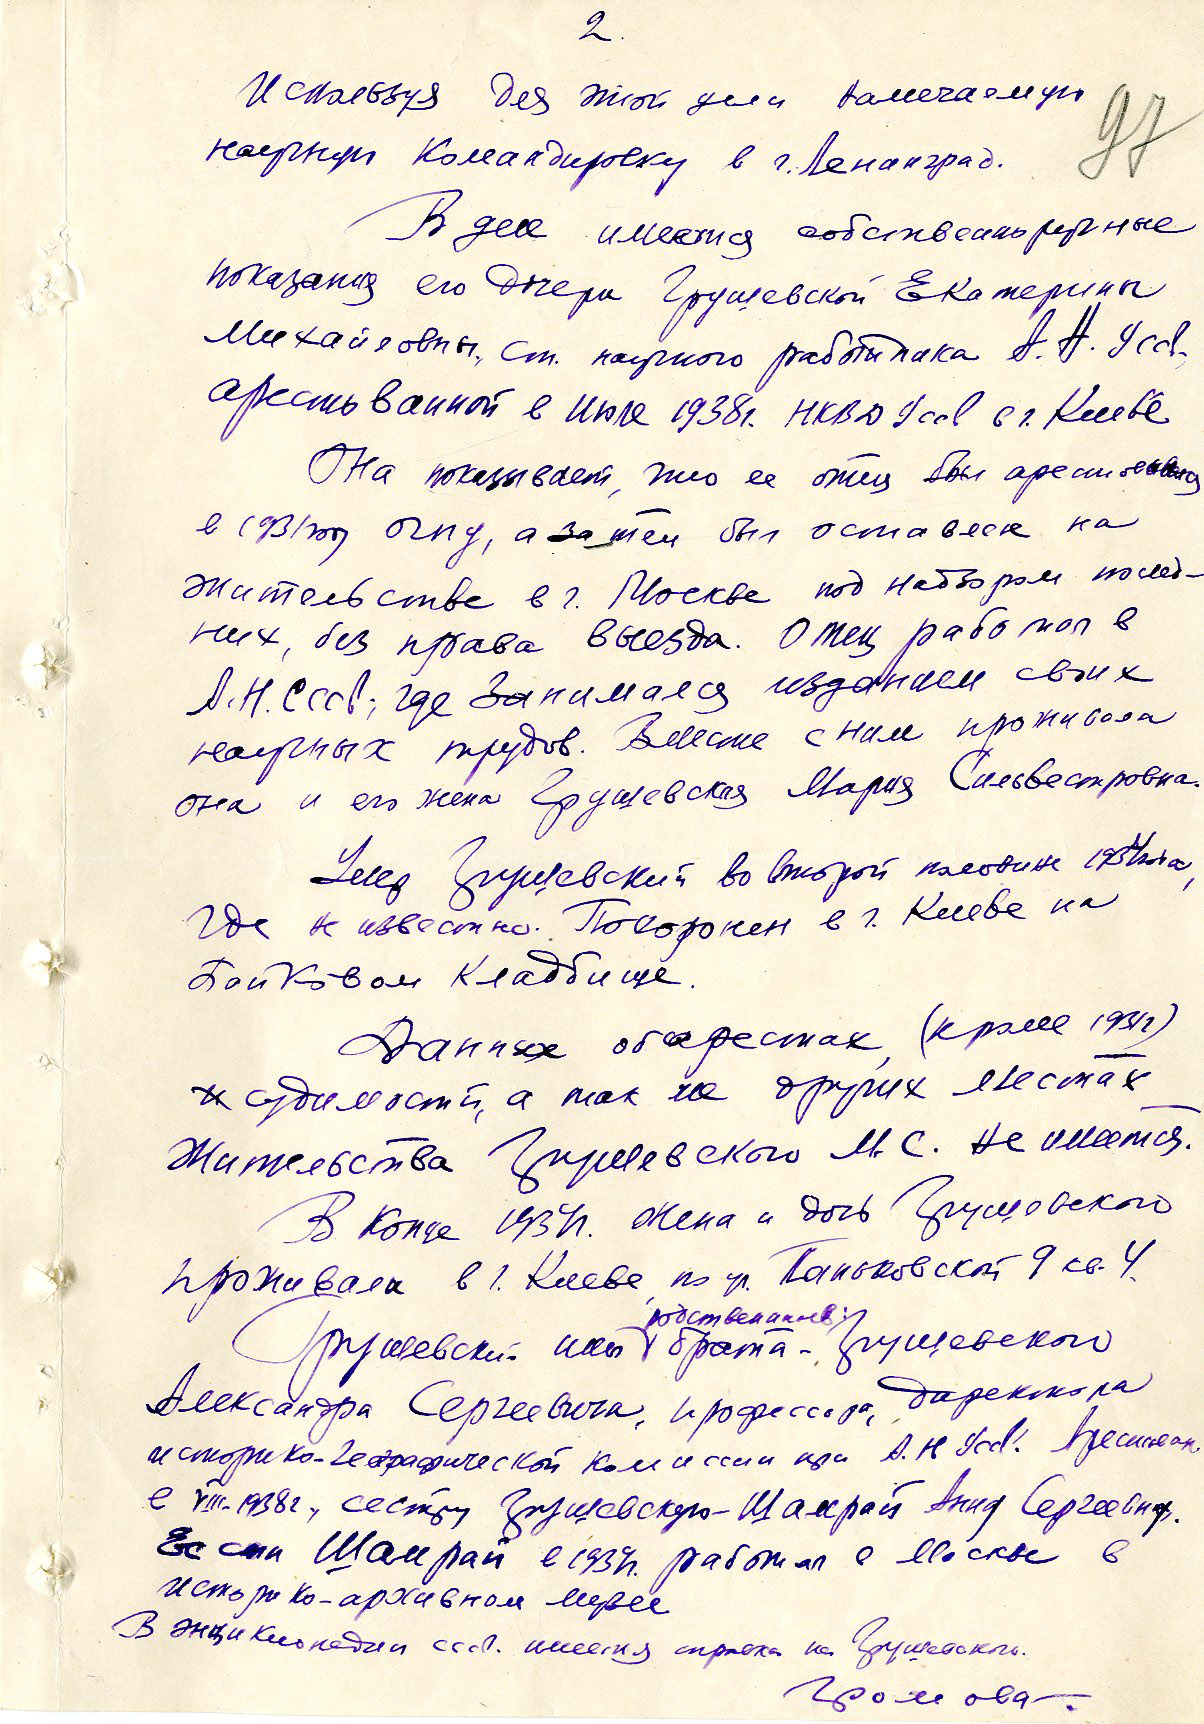 2.
97
Используя для этой цели намечаемую
научную командировку в г. Ленинград.
В деле имеются собственноручные
показания его дочери Грушевской Екатерины
Михайловны, ст. научного работника А.Н. Усср,
арестованной в июле 1938г. НКВД Усср в г. Киеве
Она показывает, что ее отец был арестован
в 1931 году ОГПУ, а затем был оставлен на
жительство в г. Москве под надзором послед-
них, без права выезда. Отец работал в
А.Н. СССР, где занимался изданием своих
научных трудов. Вместе с ним проживала
она и его жена Грушевская Мария Сильвестровна.
Умер Грушевский во второй половине 1934 года,
где не известно. Похоронен в г. Киеве на
Байковом кладбище.
Данных об арестах, (кроме 1931г)
и судимостей, а так же других местах
жительства Грушевского М.С. не имеется.
В конце 1934г. жена и дочь Грушевского
проживали в г. Киеве, по ул. Паньковской 9 кв. 4.
родственников:
Грушевский имел брата - Грушевского
Александра Сергеевича, профессора, директора
историко-географической комиссии при А.Н Усср. Арестован
в VIII-1938г., сестру Грушевскую-Шамрай Анну Сергеевну.
Ее сын Шамрай в 1934г. работал в Москве в
историко-архивном музее
В энциклопедии ссср. имеется справка на Грушевского.
Громова